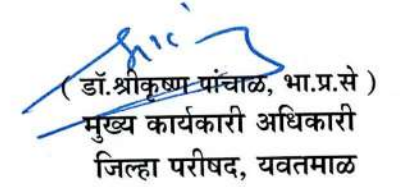 ( डॉ.श्रीकृष्ण पांचाळ, भा.प्र.से )
मुख्य कार्यकारी अधिकारी
जिल्हा परीषद, यवतमाळ